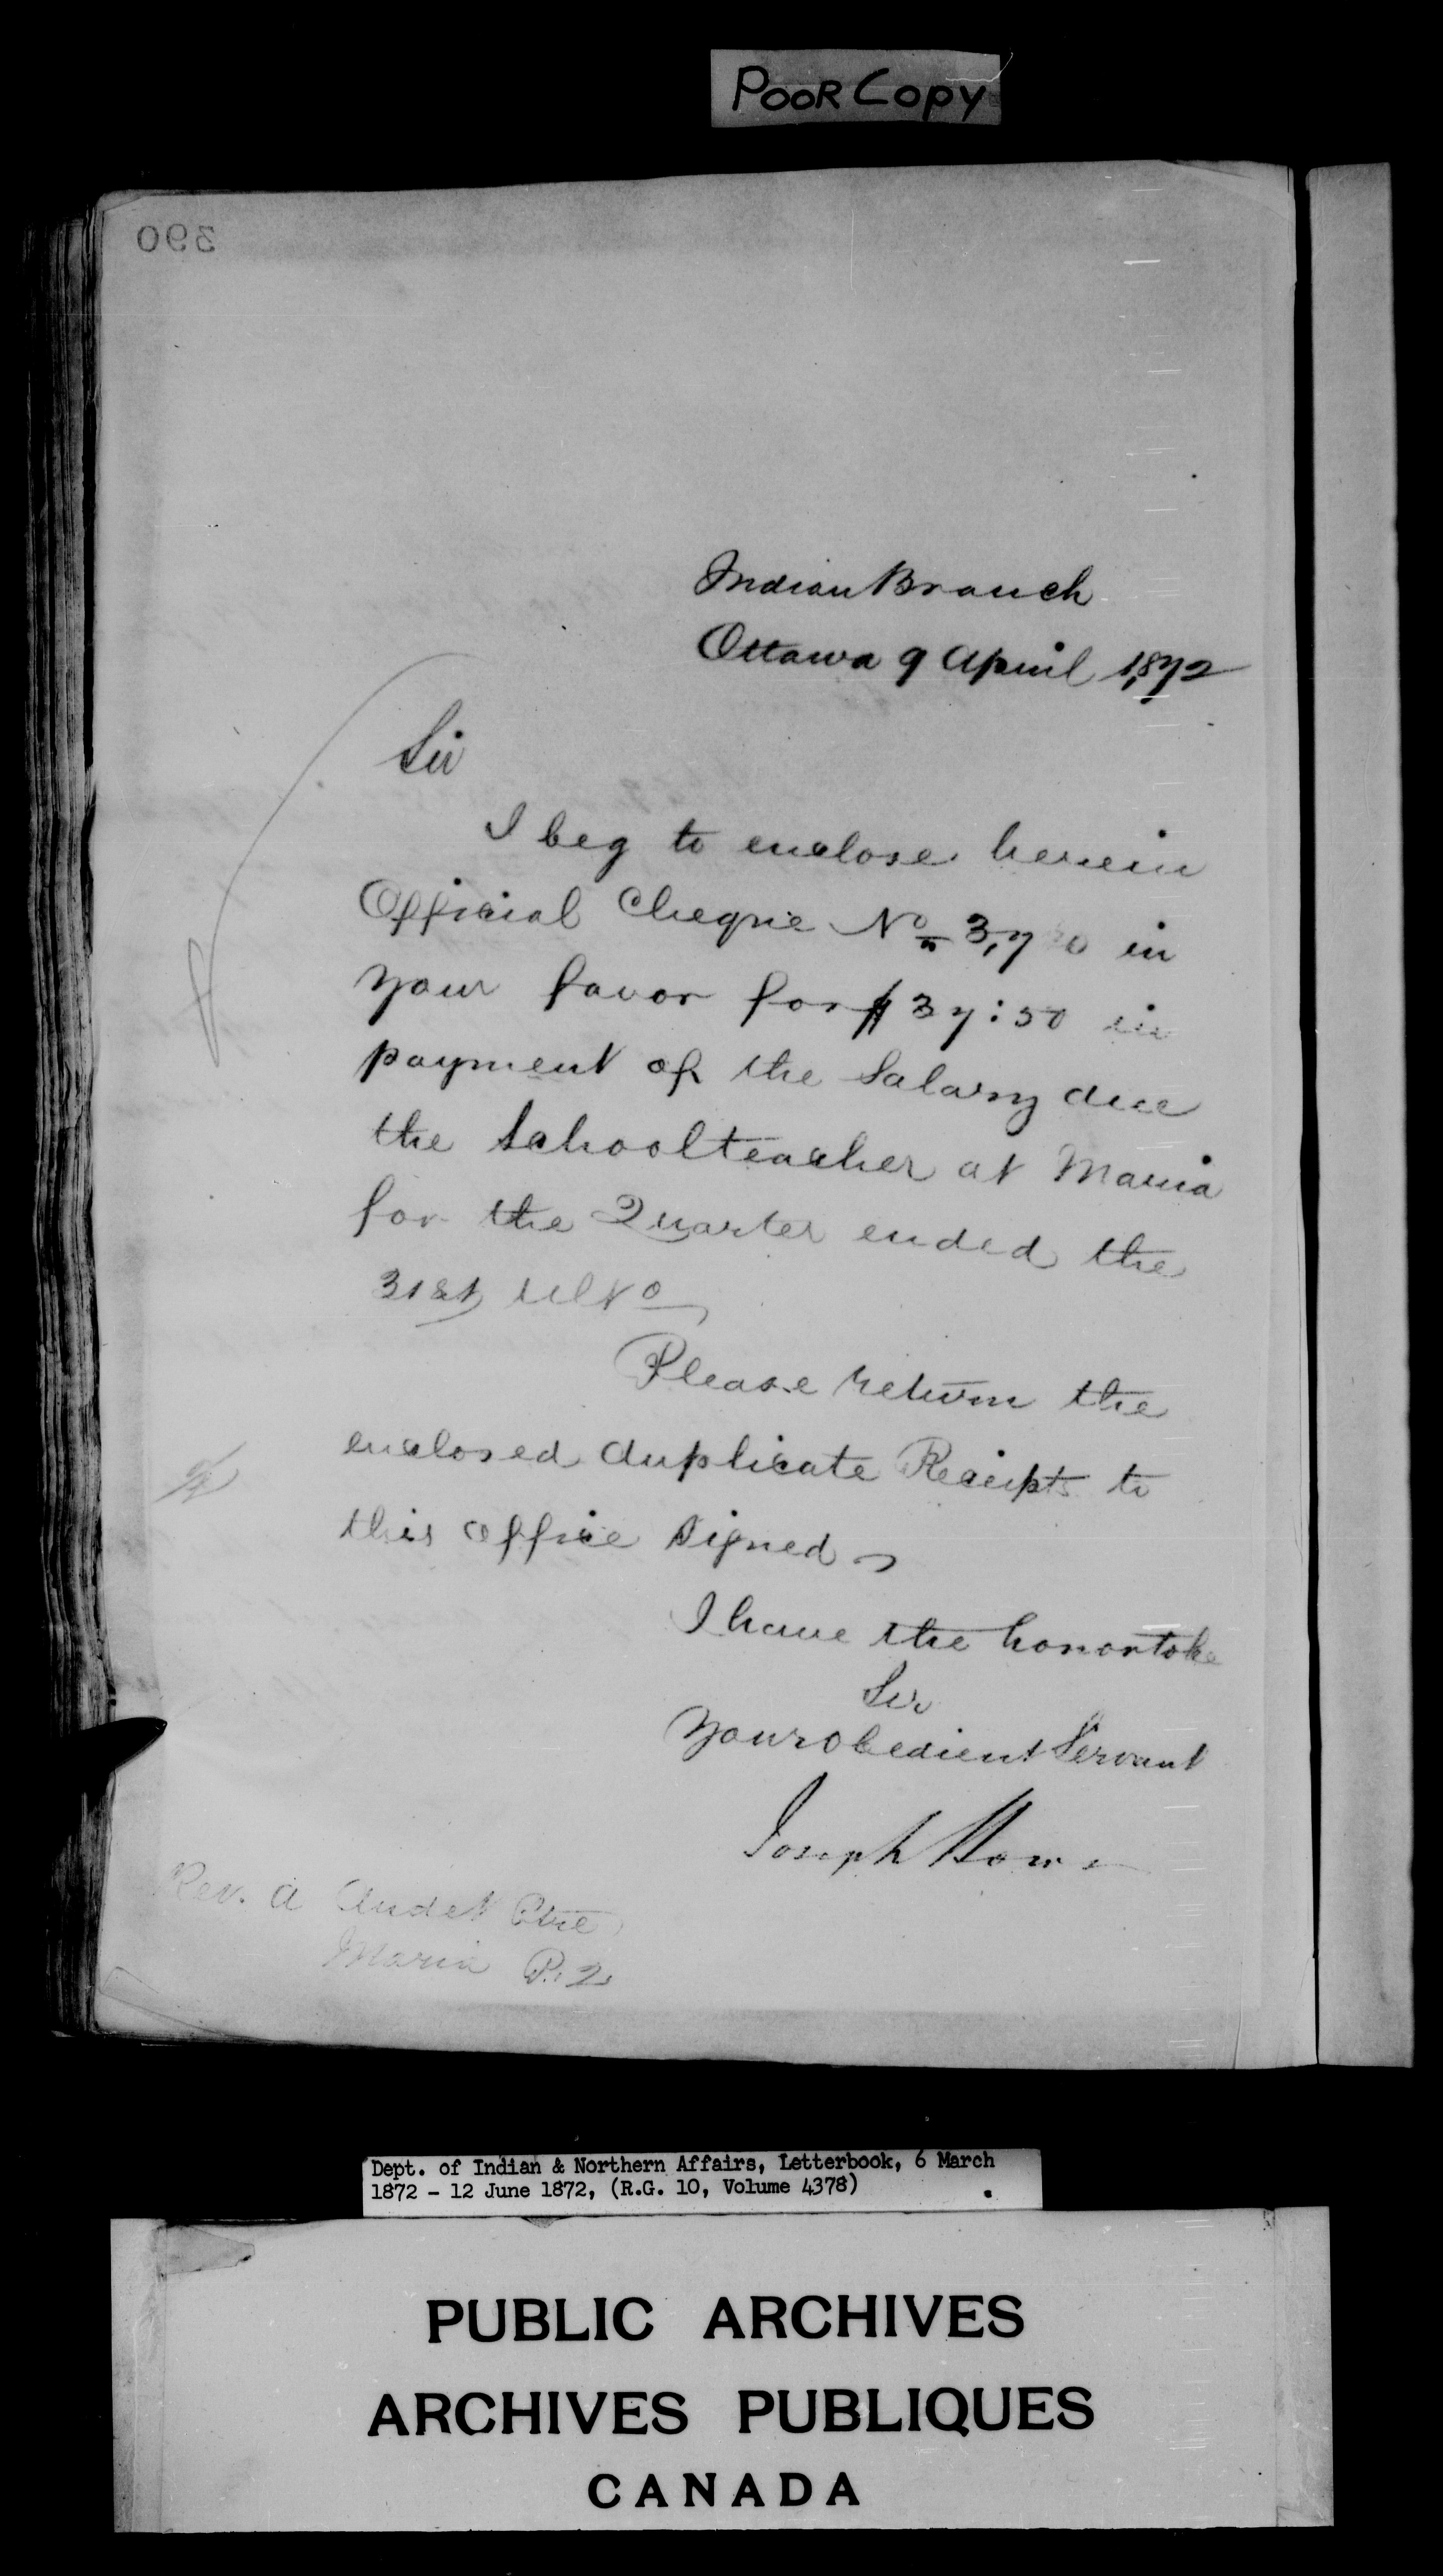 POOR COPY
390
Indian Branch
Ottawa 9 April 1872
Sir
I beg to enclose herein
Official Cheque No. in
your favor for $37:50 in
payment of the Salary due
the Schoolteacher at Maria
for the Quarter ended the
31st Ulto
Please return the
enclosed duplicate Receipts to
this office signed
I have the honor to be
Sir
Your obedient Servant
Joseph Howe
Rev. A Audet Ptre
Maria P.Q.
Dept. of Indian & Northern Affairs, Letterbook, 6 March
1872 - 12 June 1872, (R.G. 10, Volume 4378)
PUBLIC ARCHIVES
ARCHIVES PUBLIQUES
CANADA